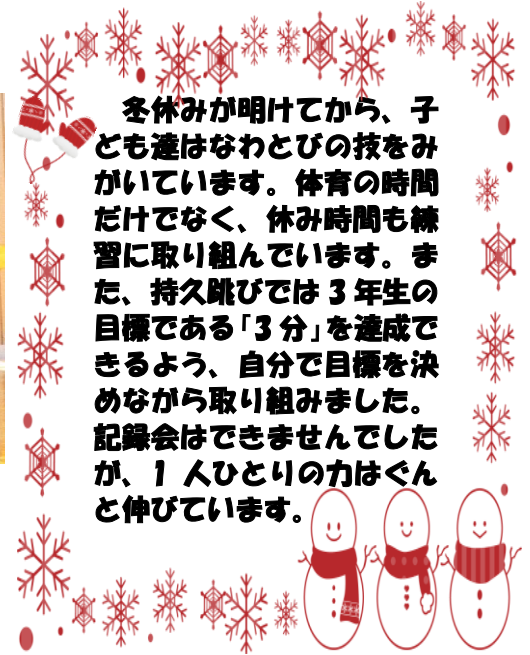 冬休みが明けてから、子
ども達はなわとびの技をみ
がいています。体育の時間
だけでなく、休み時間も練
習に取り組んでいます。ま
た、持久跳びでは3年生の
目標である「3分」を達成で
きるよう、自分で目標を決
めながら取り組みました。
記録会はできませんでした
が、1人ひとりの力はぐん
と伸びています。